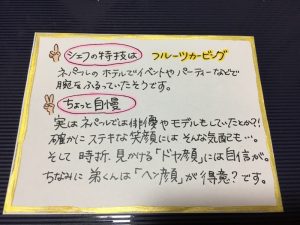 シェフの特技は フルーツカービング
ネパールのホテルでイベントやパーティーなどで
腕をふるっていたそうです。
ちょっと自慢
実はネパールでは俳優やモデルをしていたとか?!
確かにステキな笑顔にはそんな気配も…。
そして時折、見かける「ドヤ顔」には自信が。
ちなみに弟くんは「ヘン顔」が得意?です。